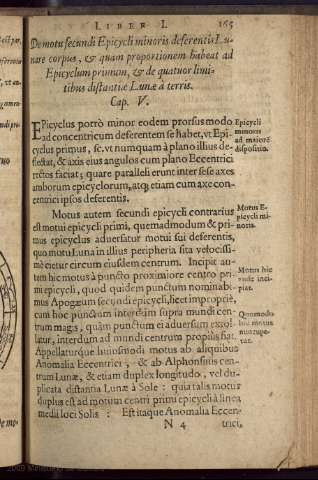 LIBER I. 165
De motu secundi Epicycli minoris deferentis Lu-
nare corpus, & quam proportionem habeat ad
Epicyclum primum, & de quatuor limi-
tibus distantiæ Lunæ à terris.
Cap. V.
EPicyclus porrò minor eodem prorsus modo
ad concentricum deferentem se habet, vt Epi-
cyclus primus, sc. vt nunquam à plano illius de-
flectat, & axis eius angulos cum plano Eccentrici
rectos faciat; quare paralleli erunt inter sese axes
amborum epicyclorum, atq; etiam cum axe con-
centrici ipsos deferentis.
Epicycli
minoris
ad maiorē
dispositio.
Motus autem secundi epicycli contrarius
est motui epicycli primi, quemadmodum & pri-
mus epicyclus aduersatur motui sui deferentis,
quo motu Luna in illius peripheria sita velocissi-
mè cietur circum eiusdem centrum. Incipit au-
tem hic motus à puncto proximiore centro pri-
mi epicycli, quod quidem punctum nominabi-
mus Apogæum secundi epicycli, licet impropriè,
cum hoc punctum interdum supra mundi cen-
trum magis, quàm punctum ei aduersum extol-
latur, interdum ad mundi centrum propius fiat.
Appellaturque huiusmodi motus ab aliquibus
Anomalia Eccentrici, & ab Alphonsinis cen-
trum Lunæ, & etiam duplex longitudo, vel du-
plicata distantia Lunæ à Sole: quia talis motus
duplus est ad motum centri primi epicycli à linea
medii loci Solis: Est itaque Anomalia Eccen-
Motus E-
picycli mi-
noris.
Motus hic
vnde inci-
piat.
Quomodo
hic motus
nuncupe-
tur.
N 4 trici,